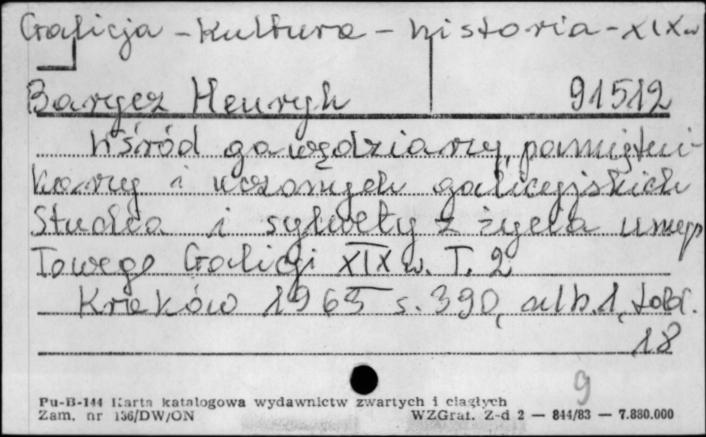 Galicja - kultura - historia - XIX w
Barycz Henryk 91512
Wśród gawędziarzy, pamiętni-
karzy i uczonych galicyjskich
Studia i sylwety z życia umysło
Towego Galicji XIX w. T. 2
Kraków 1963 s. 390, alb. 1, tabl.
18
9
Pu-B-144 Karta katalogowa wydawnictw zwartych i ciągłych
Zam. nr 136/DW/ON WZGraf. Z-d 2 — 844/83 — 7.880.000